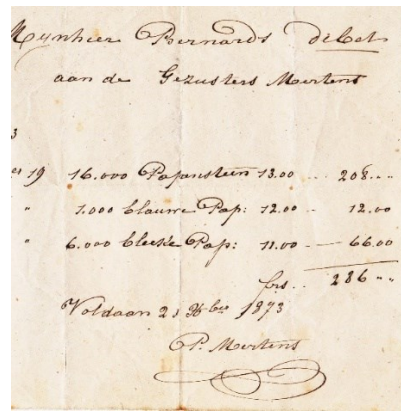 Mijnheer Bernards debet
aan de Gezusters Mertens
3
19 16.000 Papensteen 13.00 .. 208.. ..
" 1.000 blauwe Pap: 12.00 .. 12.00
" 6.000 bleeke Pap: 11.00 — 66.00
frs .. 286 " "
Voldaan 21 Xber 1873
P. Mertens